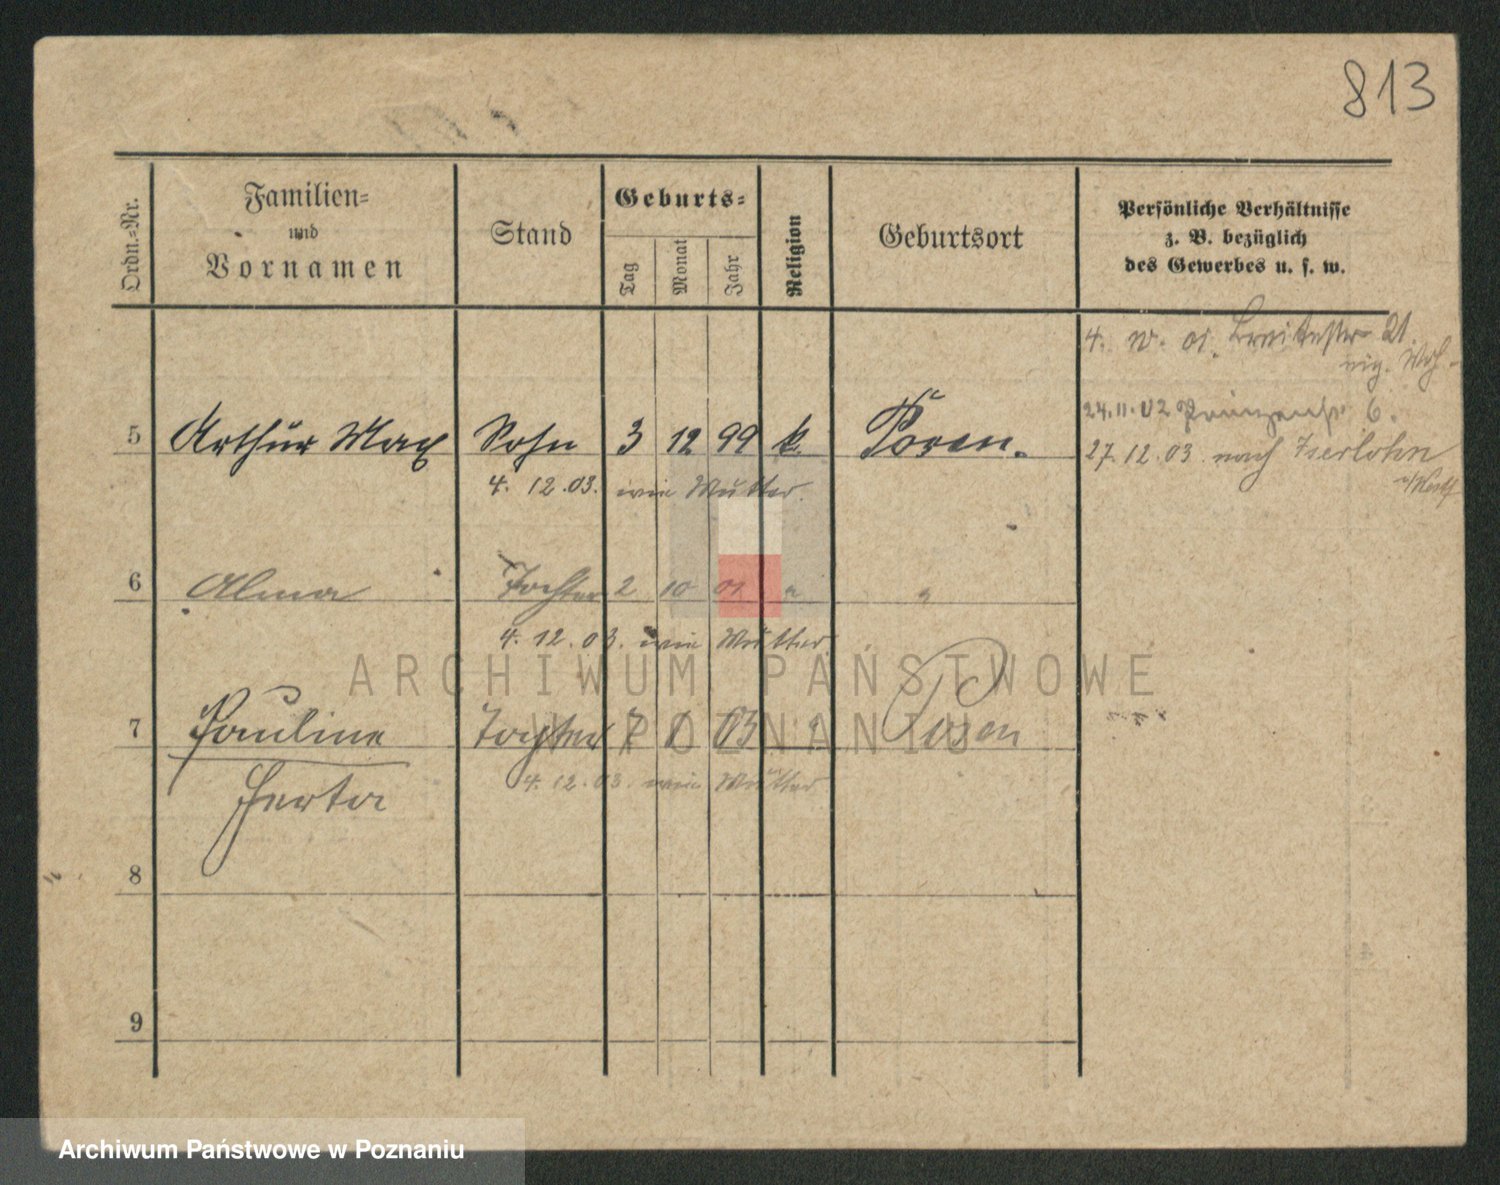 813
Ordn.-Nr.
Familien-
und
Vornamen
Stand
Geburts-
Tag
Monat
Jahr
Religion
Geburtsort
Persönliche Verhältnisse
z. B. bezüglich
des Gewerbes u. s. w.
4. 10. 01. Breitestr 21.
24.11.02 Prinzenstr 6.
5 Arthur Max Sohn 3 12 99 k. Posen.
27.12.03 nach Iserlohn
4. 12. 03. wie Mutter.
i/Westf
6 Alma Tochter 2 10 01 " "
4. 12. 03. wie Mutter.
ARCHIWUM PAŃSTWOWE
7 Pauline Tochter 7 1 03 " Posen
W POZNANIU
4. 12. 03. wie Mutter
Herta
8
9
Archiwum Państwowe w Poznaniu